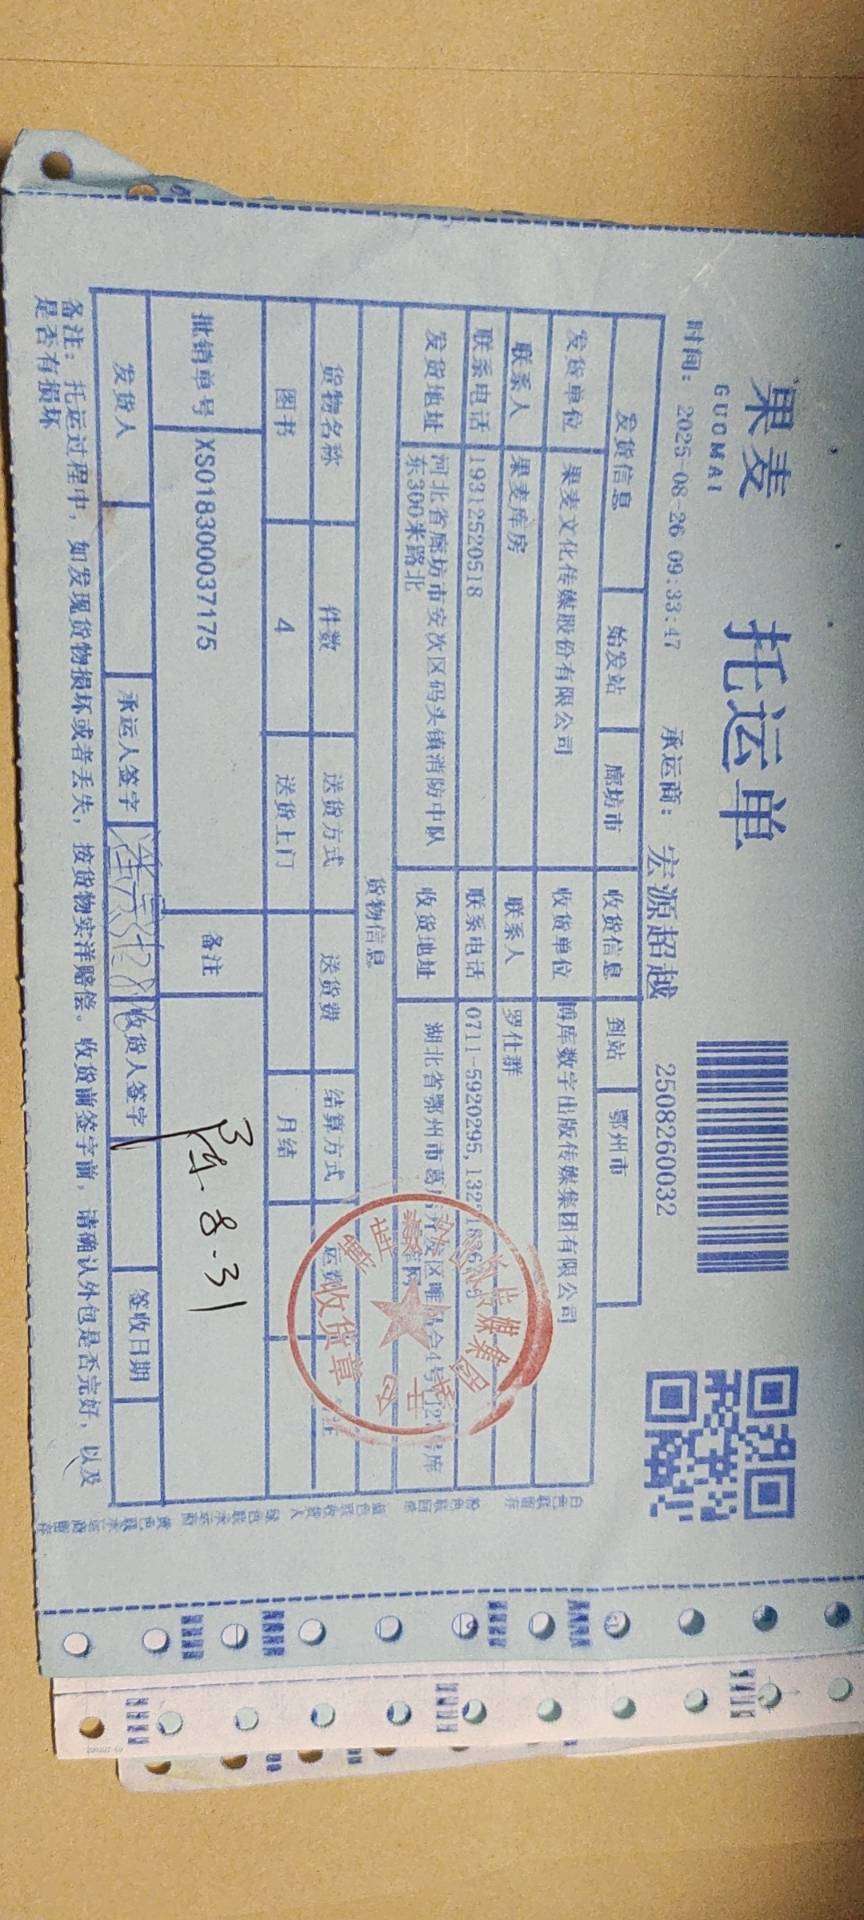 果麦
GUOMAI
托运单
时间：2025-08-26 09:33:47 承运商：宏源超越 2508260032
发货信息 始发站 廊坊市 收货信息 到站 鄂州市
发货单位 果麦文化传媒股份有限公司 收货单位 博库数字出版传媒集团有限公司
联系人 果麦库房 联系人 罗仕群
联系电话 19312520518 联系电话 0711-5920295,132
发货地址 河北省廊坊市安次区码头镇消防中队东300米路北 收货地址 湖北省鄂州市葛 开发区 库
货物信息
货物名称 件数 送货方式 送货费 结算方式 运费
图书 4 送货上门 月结
批销单号 XS018300037175 备注
3件 8.31
发货人 承运人签字 收货人签字 签收日期
备注：托运过程中，如发现货物损坏或者丢失，按货物实洋赔偿。收货前签字前，请确认外包是否完好，以及
是否有损坏
传媒集团
收货章